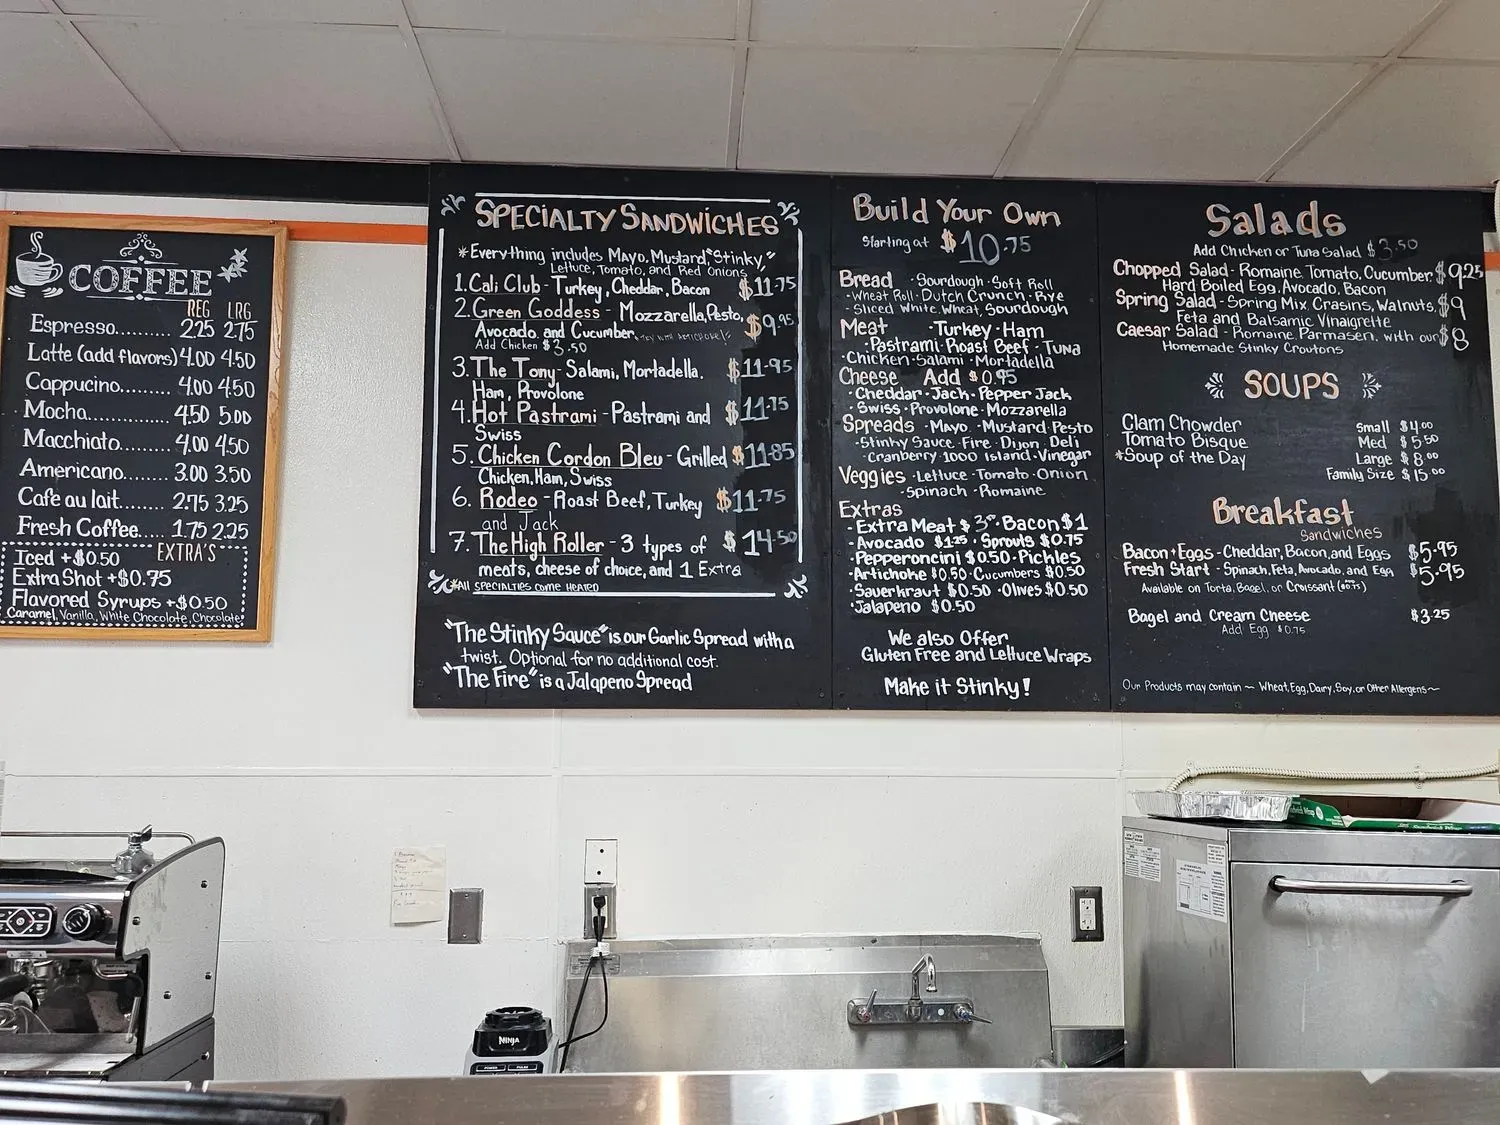 COFFEE
REG LRG
Espresso......... 2.25 2.75
Latte (add flavors) 4.00 4.50
Cappucino....... 4.00 4.50
Mocha.............. 4.50 5.00
Macchiato........ 4.00 4.50
Americano........ 3.00 3.50
Cafe au lait........ 2.75 3.25
Fresh Coffee..... 1.75 2.25
EXTRA'S
Iced +$0.50
Extra Shot +$0.75
Flavored Syrups +$0.50
Caramel, Vanilla, White Chocolate, Chocolate
SPECIALTY SANDWICHES
*Everything includes Mayo, Mustard, "Stinky,"
Lettuce, Tomato, and Red Onions
1. Cali Club - Turkey, Cheddar, Bacon $11.75
2. Green Goddess - Mozzarella, Pesto, $9.95
Avocado, and Cucumber
Add Chicken $3.50
3. The Tony - Salami, Mortadella, $11.95
Ham, Provolone
4. Hot Pastrami - Pastrami and $11.75
Swiss
5. Chicken Cordon Bleu - Grilled $11.85
Chicken, Ham, Swiss
6. Rodeo - Roast Beef, Turkey $11.75
and Jack
7. The High Roller - 3 types of $14.50
meats, cheese of choice, and 1 Extra
*All SPECIALTIES COME HEATED
"The Stinky Sauce" is our Garlic Spread with a
twist. Optional for no additional cost.
"The Fire" is a Jalapeno Spread
Build Your Own
Starting at $10.75
Bread · Sourdough · Soft Roll
· Wheat Roll · Dutch Crunch · Rye
· Sliced White, Wheat, Sourdough
Meat · Turkey · Ham
· Pastrami · Roast Beef · Tuna
· Chicken · Salami · Mortadella
Cheese Add $0.95
· Cheddar · Jack · Pepper Jack
· Swiss · Provolone · Mozzarella
Spreads · Mayo · Mustard · Pesto
· Stinky Sauce · Fire · Dijon · Deli
· Cranberry · 1000 Island · Vinegar
Veggies · Lettuce · Tomato · Onion
· Spinach · Romaine
Extras
· Extra Meat $3 · Bacon $1
· Avocado $1.25 · Sprouts $0.75
· Pepperoncini $0.50 · Pickles
· Artichoke $0.50 · Cucumbers $0.50
· Sauerkraut $0.50 · Olives $0.50
· Jalapeno $0.50
We also Offer
Gluten Free and Lettuce Wraps
Make it Stinky!
Salads
Add Chicken or Tuna Salad $3.50
Chopped Salad - Romaine, Tomato, Cucumber, $9.25
Hard Boiled Egg, Avocado, Bacon
Spring Salad - Spring Mix, Crasins, Walnuts, $9
Feta and Balsamic Vinaigrette
Caesar Salad - Romaine, Parmasen, with our $8
Homemade Stinky Croutons
SOUPS
Clam Chowder
Tomato Bisque
*Soup of the Day
Small $4.00
Med $5.50
Large $8.00
Family Size $15.00
Breakfast
Sandwiches
Bacon + Eggs - Cheddar, Bacon, and Eggs $5.95
Fresh Start - Spinach, Feta, Avocado, and Egg $5.95
Available on Torta, Bagel, or Croissant ($0.75)
Bagel and Cream Cheese $3.25
Add Egg $0.75
Our Products may contain ~ Wheat, Egg, Dairy, Soy, or Other Allergens ~
NINJA
POWER PULSE